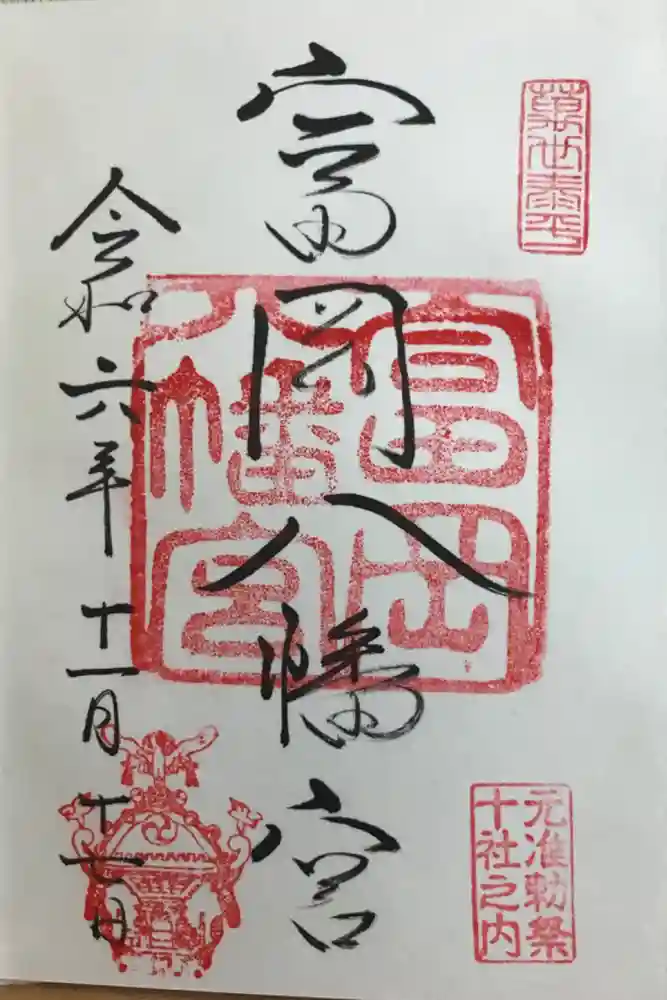 萬世泰平
元准勅祭
十社之内
富岡八幡宮
富岡
八幡宮
令和六年十一月十一日